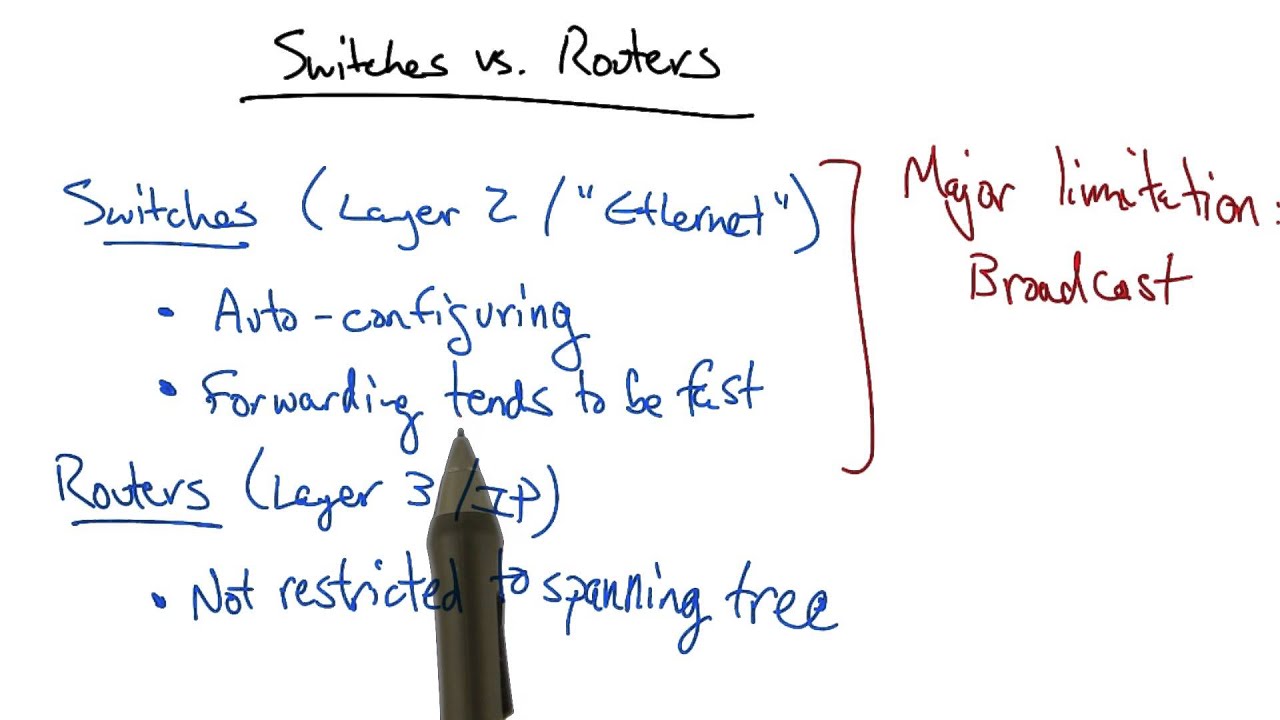 Switches vs. Routers
Switches (Layer 2 / "Ethernet")
• Auto-configuring
• Forwarding tends to be fast
Routers (Layer 3 / IP)
• Not restricted to spanning tree
Major limitation:
Broadcast